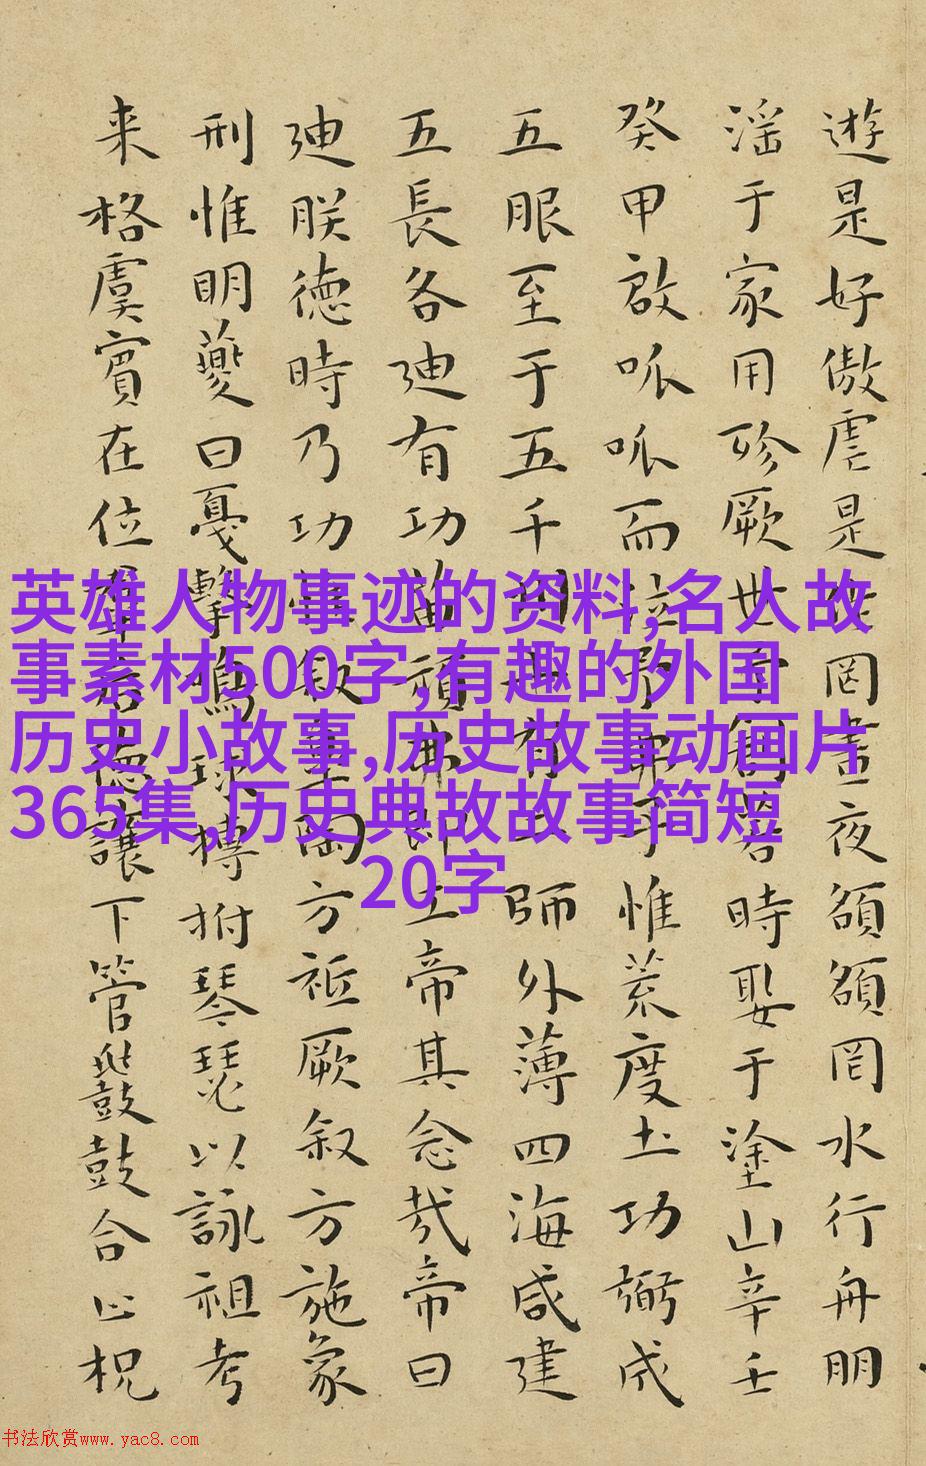 遊是好傲虐是作罔晝夜頟頟罔水行舟朋
淫于家用殄厥世予創若時娶于塗山辛壬
癸甲啟呱呱而泣予弗子惟荒度土功弼成
五服至于五千州十有二師外薄四海咸建
五長各迪有功苗頑弗即工帝其念哉帝曰
迪朕德時乃功惟叙皋陶方祗厥叙方施象
刑惟明夔曰戛擊鳴球搏拊琴瑟以詠祖考
来格虞賓在位群后德讓下管鼗鼓合止柷
英雄人物事迹的资料,名人故
事素材500字,有趣的外国
历史小故事,历史故事动画片
365集,历史典故故事简短
20字
书法欣赏www.yac8.com